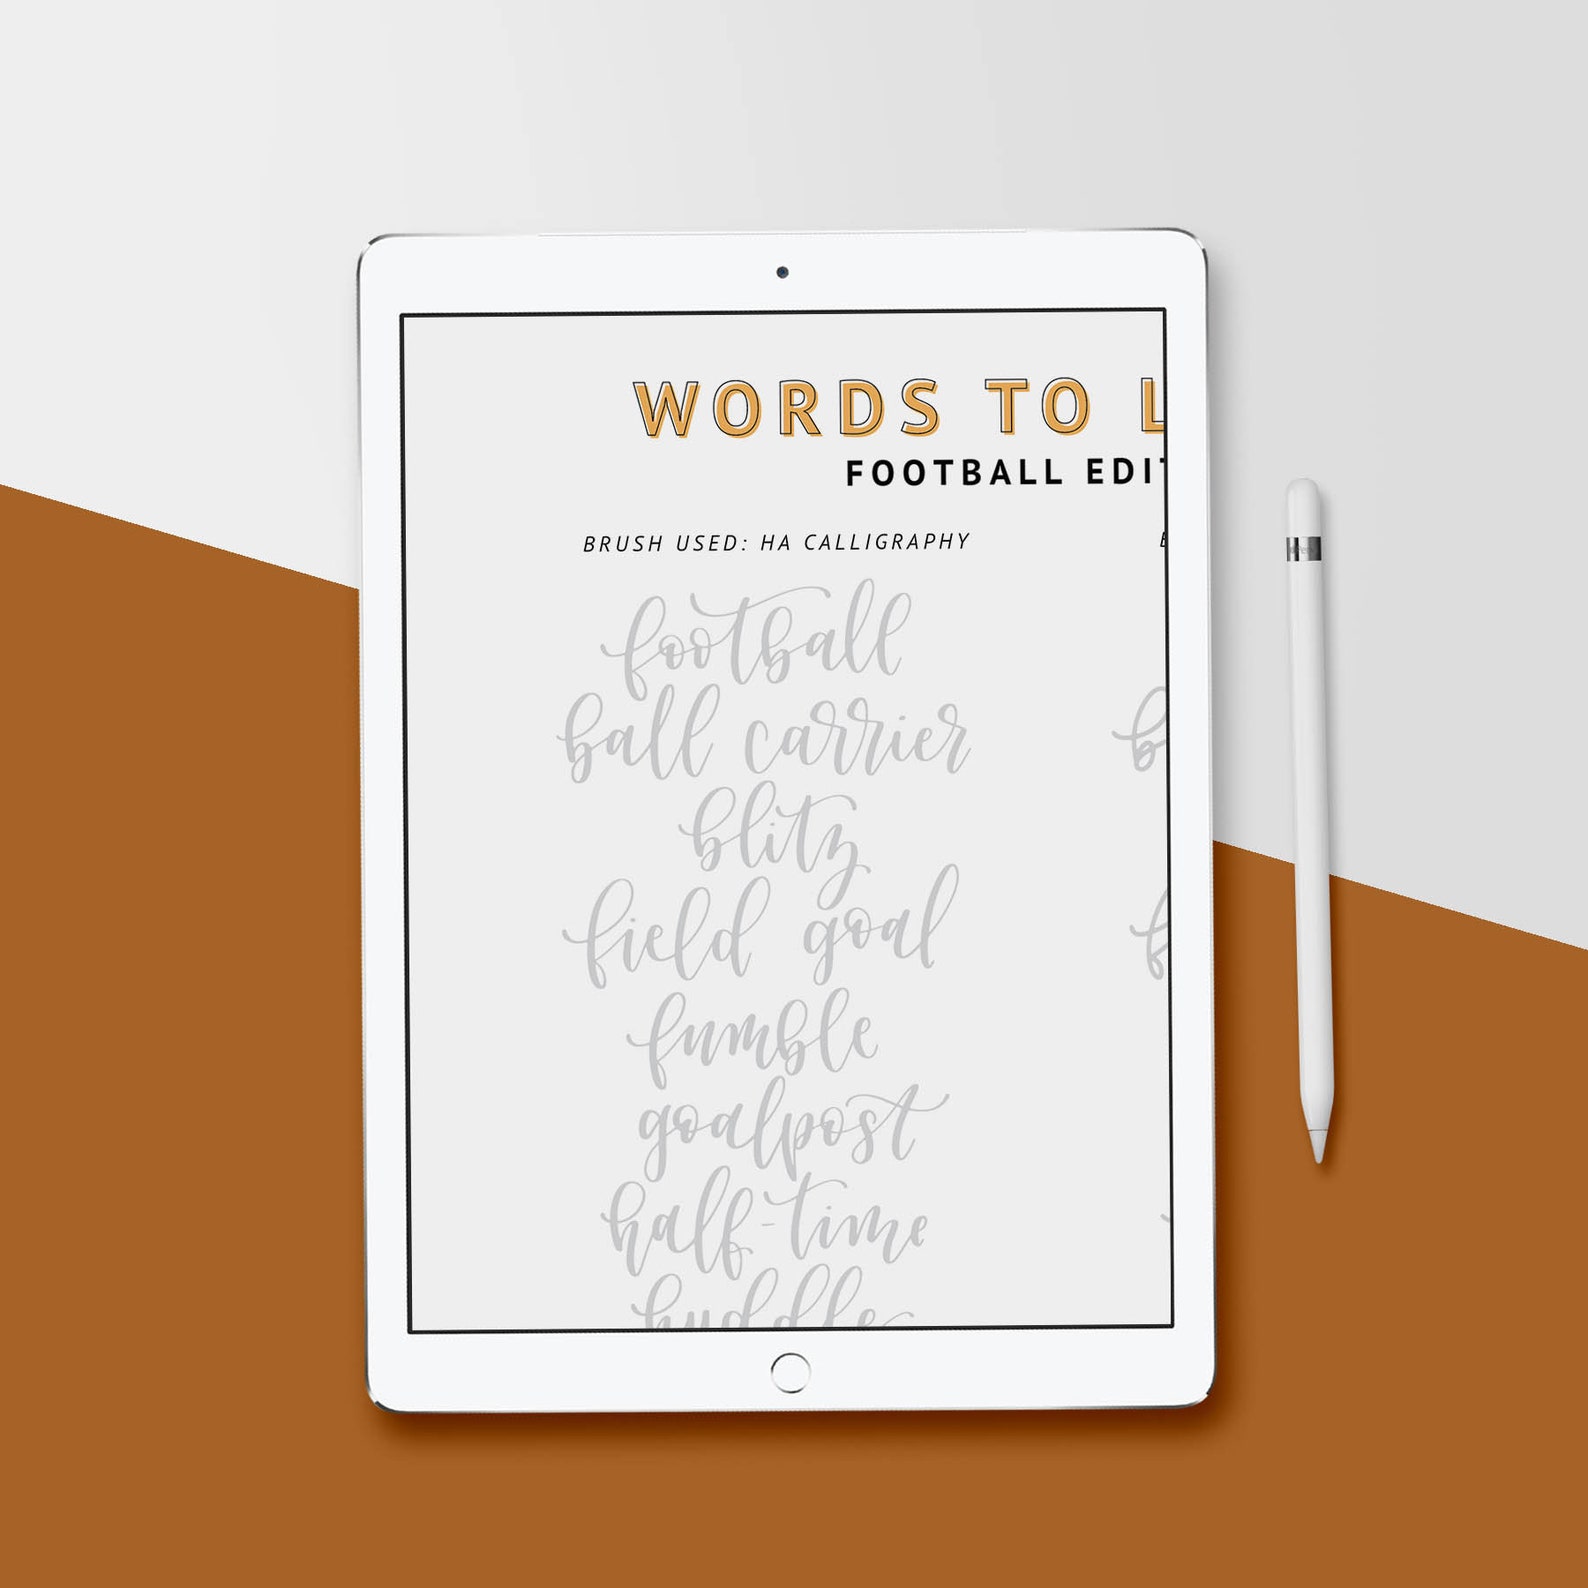 WORDS TO L
FOOTBALL EDIT
BRUSH USED: HA CALLIGRAPHY
football
ball carrier
blitz
field goal
fumble
goalpost
half-time
huddle